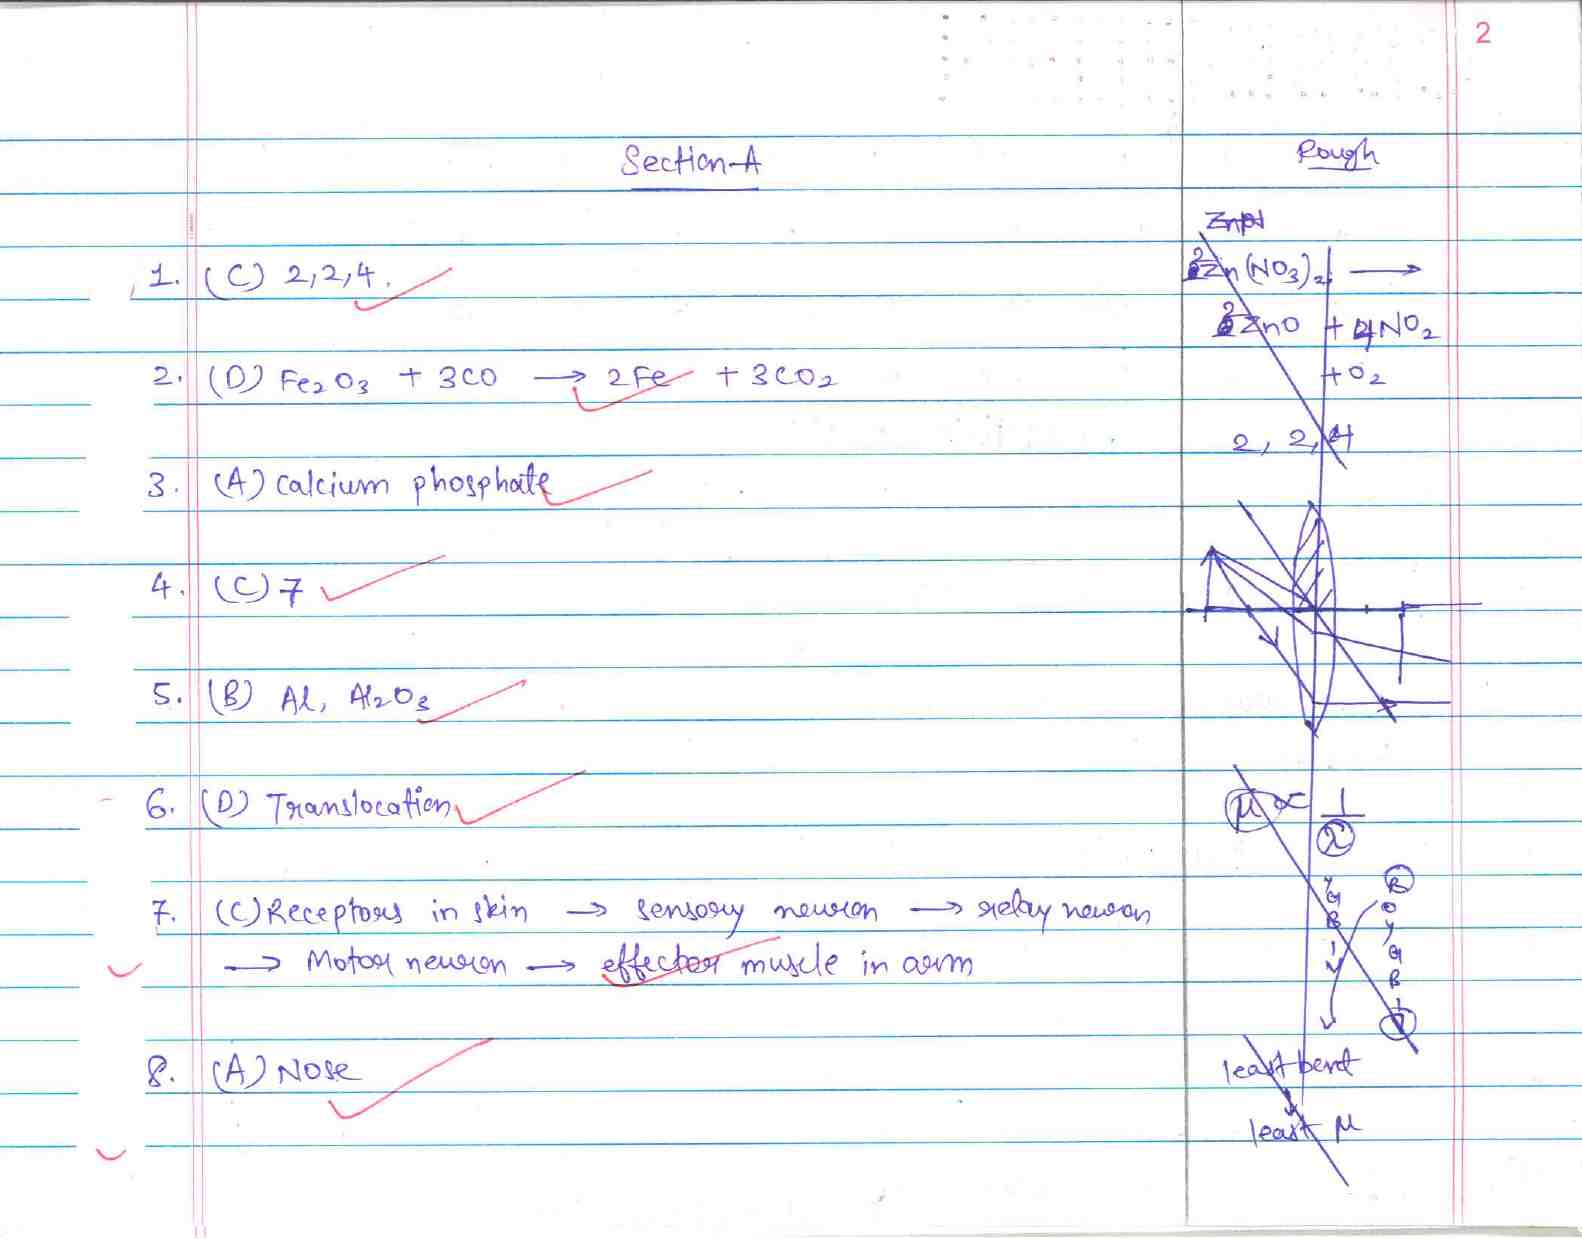 2
Section-A
Rough
1. (C) 2,2,4.
2. (D) Fe₂O₃ + 3CO → 2Fe + 3CO₂
3. (A) Calcium phosphate
4. (C) 7
5. (B) Al, Al₂O₃
6. (D) Translocation
7. (C) Receptors in skin → sensory neuron → relay neuron
→ Motor neuron → effector muscle in arm
8. (A) Nose
2Zn(NO₃)₂ →
2ZnO + 4NO₂
+ O₂
2, 2, 4
μ ∝ 1/λ
Y
G
B
I
V
R
O
Y
G
B
I
V
least bent
least μ